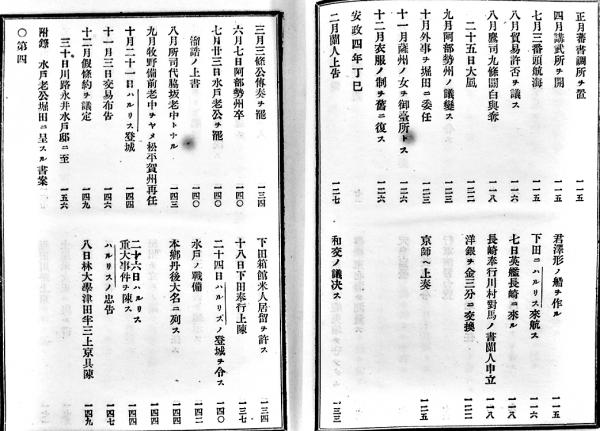 正月蕃書調所ヲ置 一一五
君澤形ノ船ヲ作ル 一一五
四月講武所ヲ開 一一五
下田ニハルリス來航ス 一一六
七月三番頭航海 一一五
七日英艦長崎ニ來ル 一一八
八月貿易許否ヲ議ス 一一六
長崎奉行川村對馬ノ書蘭人申立 一一八
八月鷹司九條關白與奪 一一八
洋銀ヲ金三分ニ交換 一二二
二十五日大風
九月阿部勢州ノ議變ス 一二二
十月外事ヲ堀田ニ委任 一二三
京師ヘ上奏 一二五
十一月薩州ノ女ヲ御臺所トス 一二六
十二月衣服ノ制ヲ舊ニ復ス
安政四年丁巳
二月蘭人上告 一二七
和交ノ議決ス 一三三
三月三條公傳奏ヲ罷 一三四
下田箱館米人居留ヲ許ス 一三四
六月七日阿部勢州卒 一四〇
十八日下田奉行上陳 一三七
七月廿三日水戸老公ヲ罷 一四〇
二十四日ハルリスノ登城ヲ令ス 一四〇
溜詰ノ上書 一四〇
水戸ノ戰備 一四二
八月所司代脇坂老中トナル 一四三
本鄕丹後大名ニ列ス 一四四
九月牧野備前老中ヲヤメ松平賀州再任 一四四
十月二十一日ハルリス登城 一四四
二十六日ハルリス重大事件ヲ陳ス 一四四
十一月三日交易布告 一四六
ハルリスノ忠告 一四七
十二月假條約ヲ議定 一四九
八日林大學津田半三上京具陳 一四九
三十日川路永井水戸邸ニ至 一五六
附錄 水戸老公堀田ニ呈スル書案
〇第四